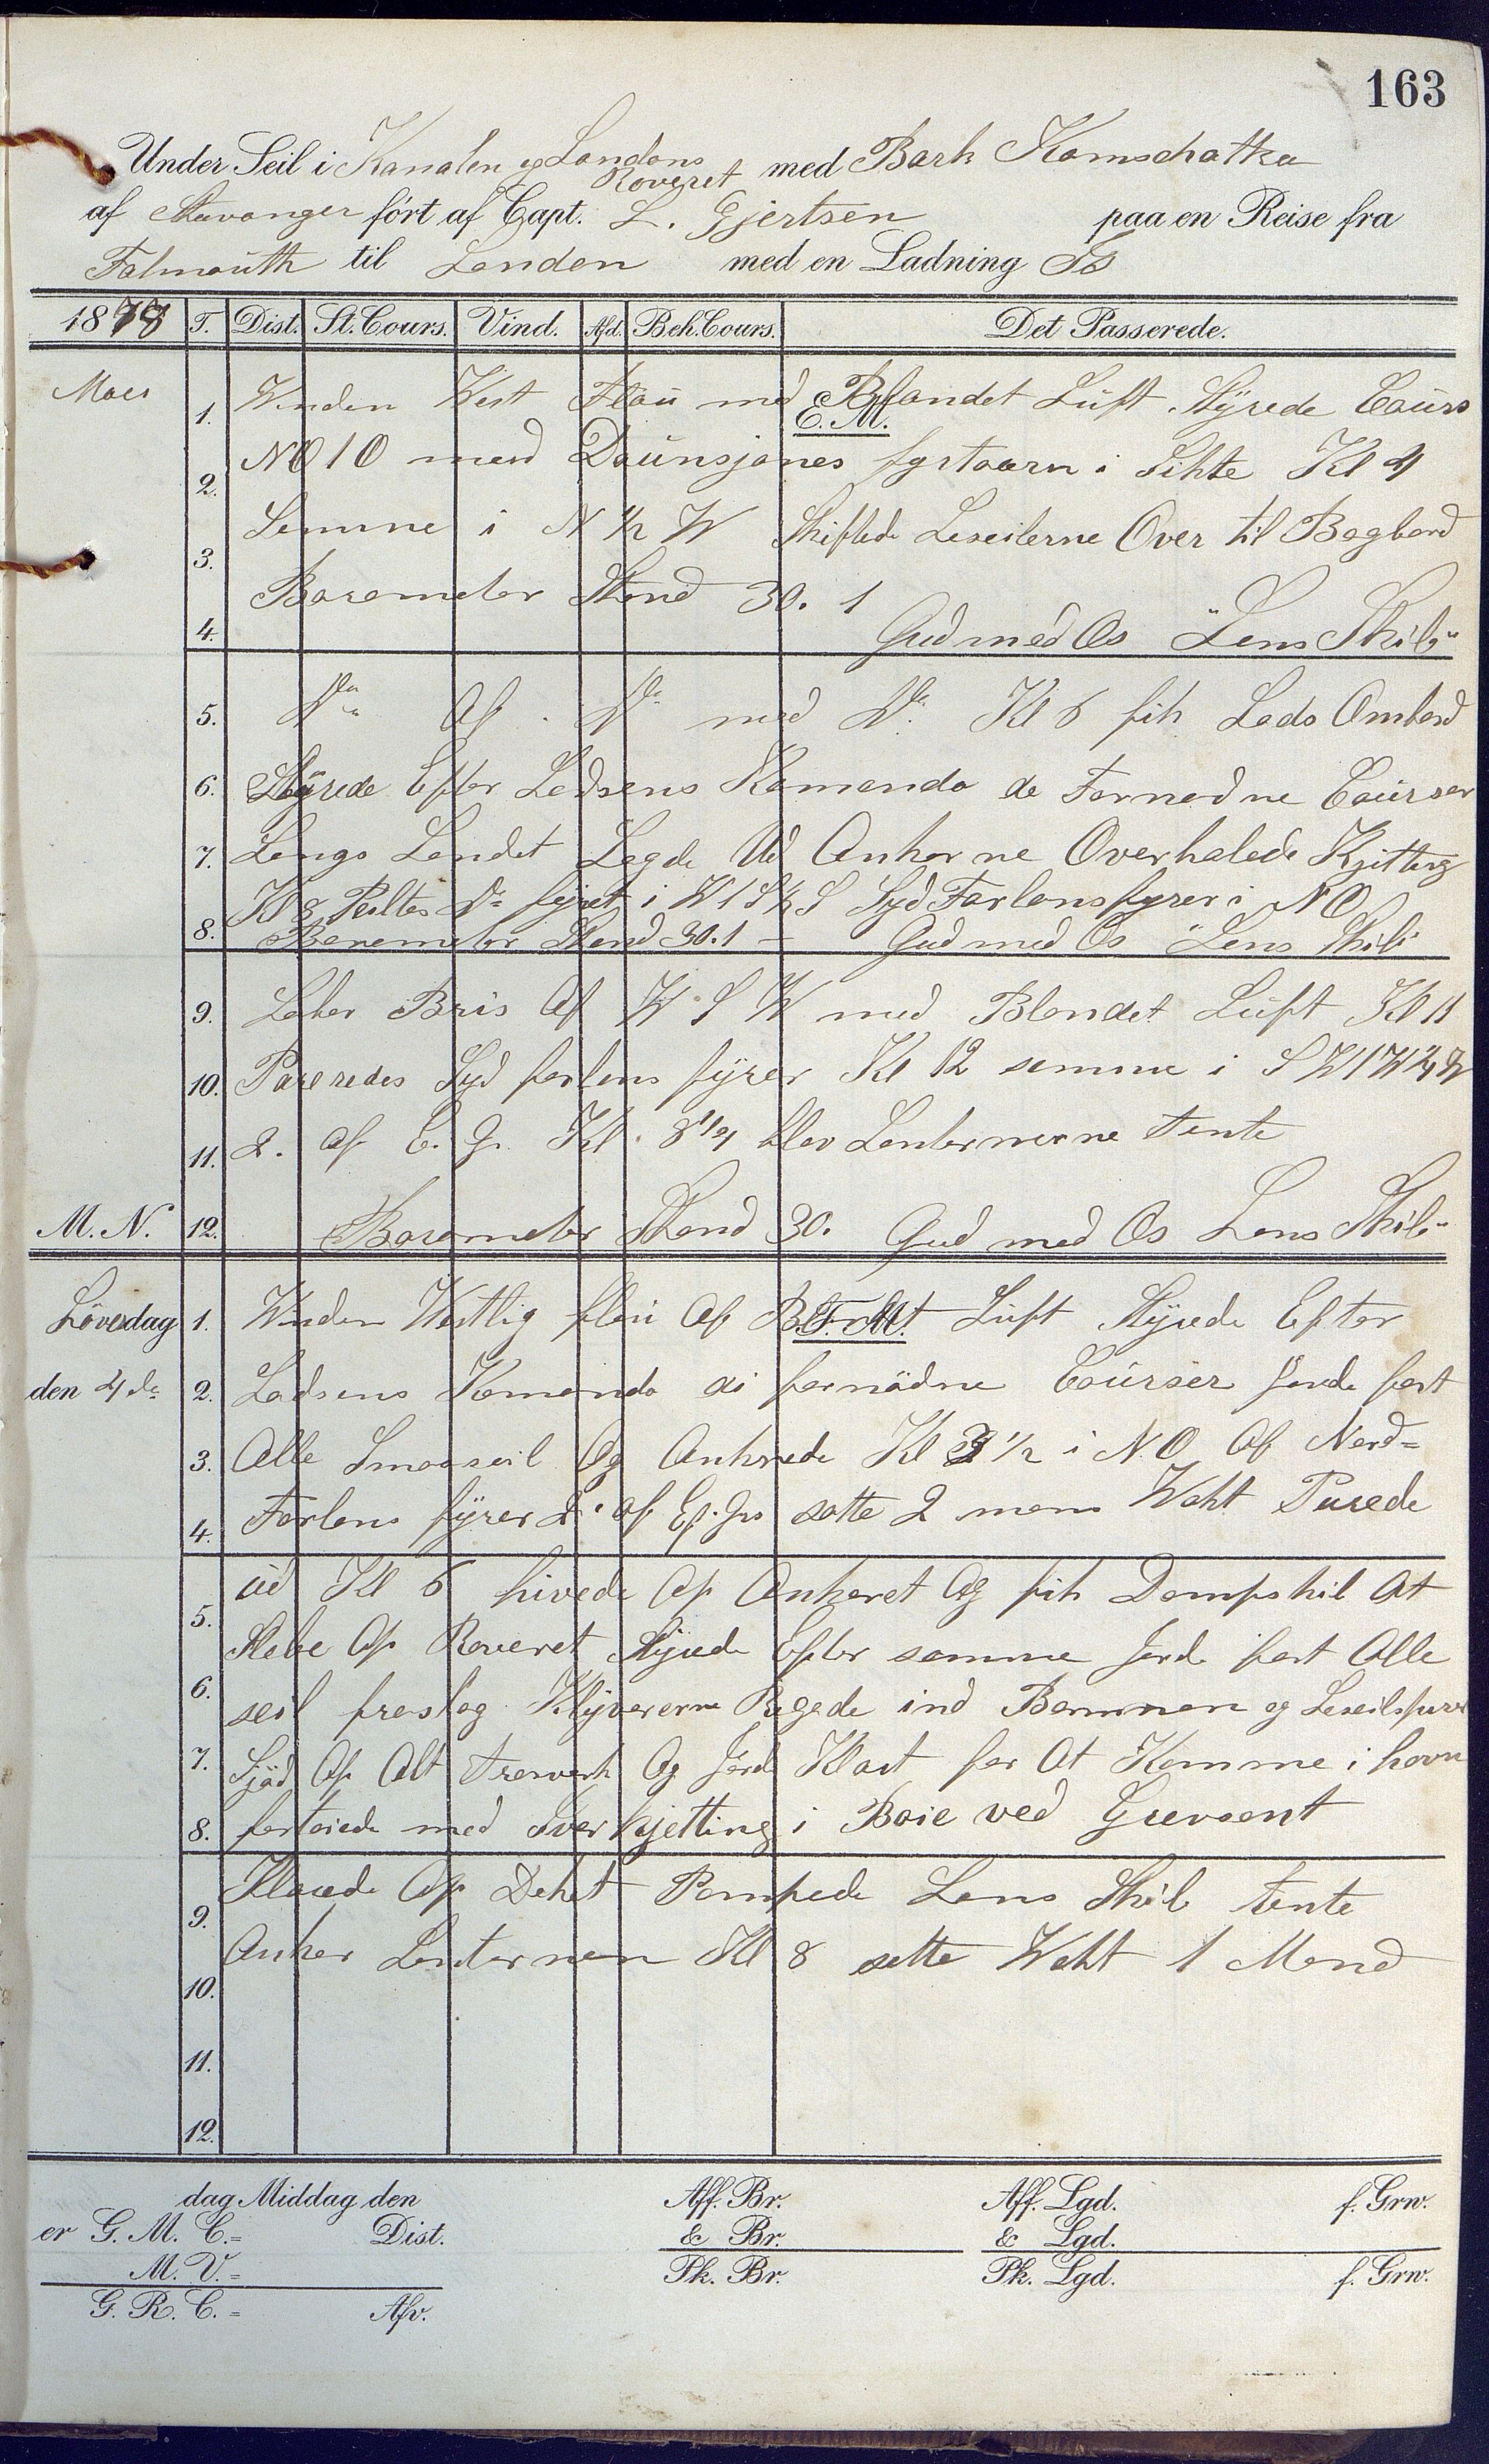 163
Under Seil i Kanalen og Londons Reveret med Bark Kamschatka
af Stavanger ført af Capt. L. Gjertsen paa en Reise fra
Falmouth til London med en Ladning
1878 T. Dist. St. Cours. Vind. Afd. Beh. Cours. Det Passerede.
E. M.
Mars 1. Vinden West Flau med Blandet Luft. Styrede Cours
2. NO 1 O med Daünsjanes fyrtaarn i Sihte Kl 4
3. Samme i N 1/2 W Skiftede Leseilerne Over til Bagbord
4. Barometer Stand 30. 1
Gud med Os "Lens Skib"
5. Do Af Do med Do. Kl 6 fik Lods Ombord
6. Styrede Efter Lodsens Komando de Fornødne Courser
7. Langs Landet Lagde Ud Ankerne Overhalede Kjitting
8. Kl 8 Peiltes Do fyret i W 1 S 1/2 S Syd Forlans fyrer i NO
Baremeter Stand 30.1 — Gud med Os "Lens Skib"
9. Laber Bris Af W S W med Blandet Luft Kl 11
10. Paseredes Syd forlans fyrer Kl 12 samme i S W 1 W 1/4 W
11. 2. af E. G. Kl. 8 1/4 blev Lanternerne Tente
M. N. 12. Barometer Stand 30. Gud med Os Lens Skib"
F. M.
Löverdag 1. Vinden Westlig flau Af Luft Styrede Efter
den 4 de 2. Lodsens Komando di fornødne Courser Jorde fast
3. Alle Smaaseil Og Ankrede Kl 3 1/2 i NO Af Nord=
4. Forlans fyrer 2. af satte 2 mans Waht Purede
5. ud Kl 6 hivede Op Ankeret Og fik Dampskib At
Slebe Op Reveret Styrede Efter samme Jorde fast Alle
6. seil fraslog Klyvererne Rigede ind Bommen og
7. Af Alt Treverk Og Jorde Klart for At Komme i havn
8. fortøiede med Sver kjetting i Boie ved Grevsent
9. Klarede Op Dekket Pompede Lens Skib tente
10. Anker Lanternen Kl 8 satte Waht 1 Mand
11.
12.
dag Middag den Aff. Br. Aff. Lgd. f. Grw.
er G. M. C. = Dist. & Br. & Lgd.
M. V. = Pk. Br. Pk. Lgd. f. Grw.
G. R. C. = Afv.